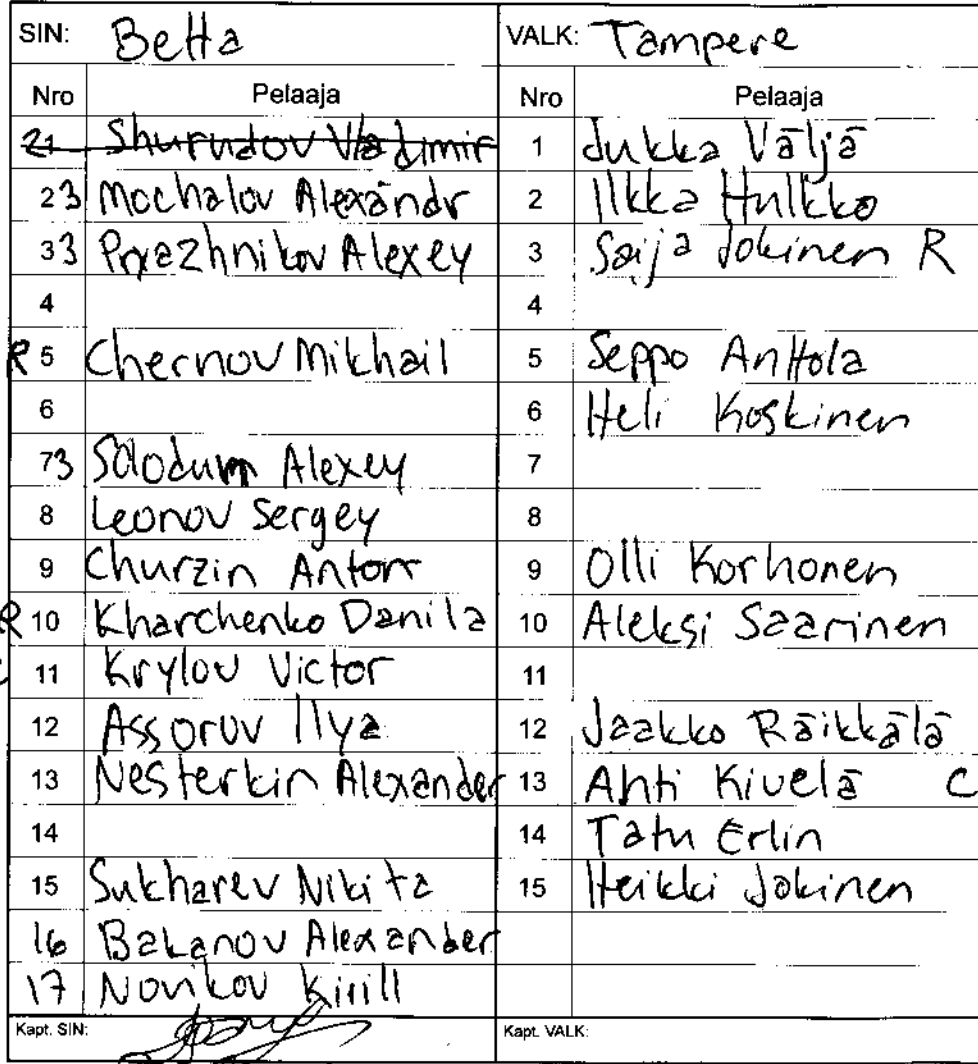 SIN: Betta
Nro Pelaaja
21 Shurudov Vladimir
23 Mochalov Alexandr
33 Pryazhnikov Alexey
4
R 5 Chernov Mikhail
6
73 Solodum Alexey
8 Leonov Sergey
9 Churzin Anton
R 10 Kharchenko Danila
C 11 Krylov Victor
12 Assoruv Ilya
13 Nesterkin Alexander
14
15 Sukharev Nikita
16 Bakanov Alexander
17 Novikov Kirill
Kapt. SIN:
VALK: Tampere
Nro Pelaaja
1 Jukka Väljä
2 Ilkka Hulkko
3 Saija Jokinen R
4
5 Seppo Anttola
6 Heli Koskinen
7
8
9 Olli Korhonen
10 Aleksi Saarinen
11
12 Jaakko Räikkälä
13 Ahti Kivelä C
14 Tatu Erlin
15 Heikki Jokinen
Kapt. VALK: